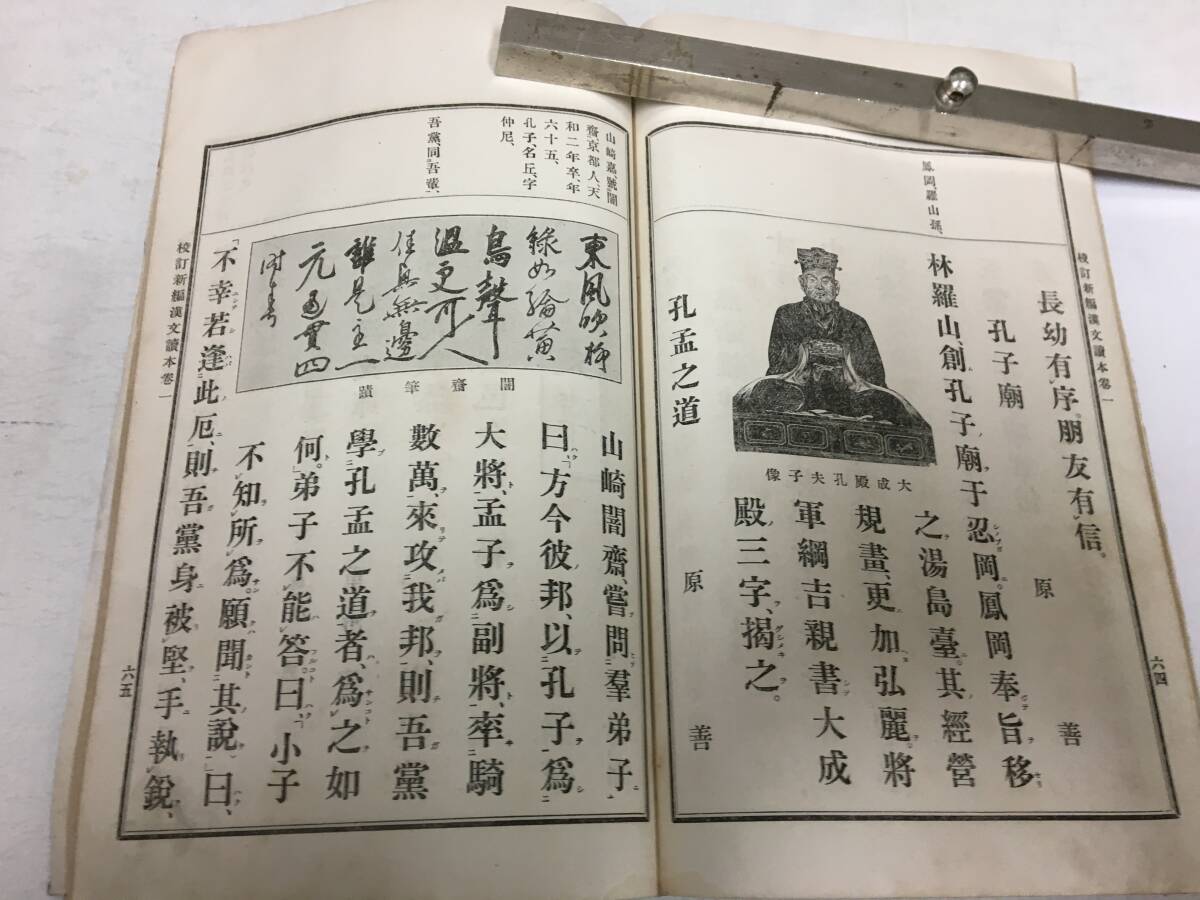 校訂新編漢文讀本卷一
六四
鳳岡、羅山孫、
長幼有序。朋友有信。
孔子廟　原善
林羅山、創孔子廟于忍岡。鳳岡奉旨移
之湯島臺。其經營
規畫、更加弘麗。將
軍綱吉親書大成
殿三字、揭之。
大成殿孔夫子像
孔孟之道　原善
山崎嘉、號闇
齋、京都人、天
和二年卒、年
六十五、
孔子、名丘、字
仲尼、
吾黨、同吾輩、
東風吹柳
綠如綸黃
鳥聲
溫更可人
佳興無邊
誰是主一
元通貫四
時春
闇齋筆蹟
山崎闇齋、嘗問羣弟子
曰、「方今彼邦、以孔子爲
大將、孟子爲副將、率騎
數萬、來攻我邦、則吾黨
學孔孟之道者、爲之如
何。」弟子不能答。曰、「小子
不知所爲。願聞其說。」曰、
「不幸若逢此厄、則吾黨身被堅、手執銳、
校訂新編漢文讀本卷一
六五